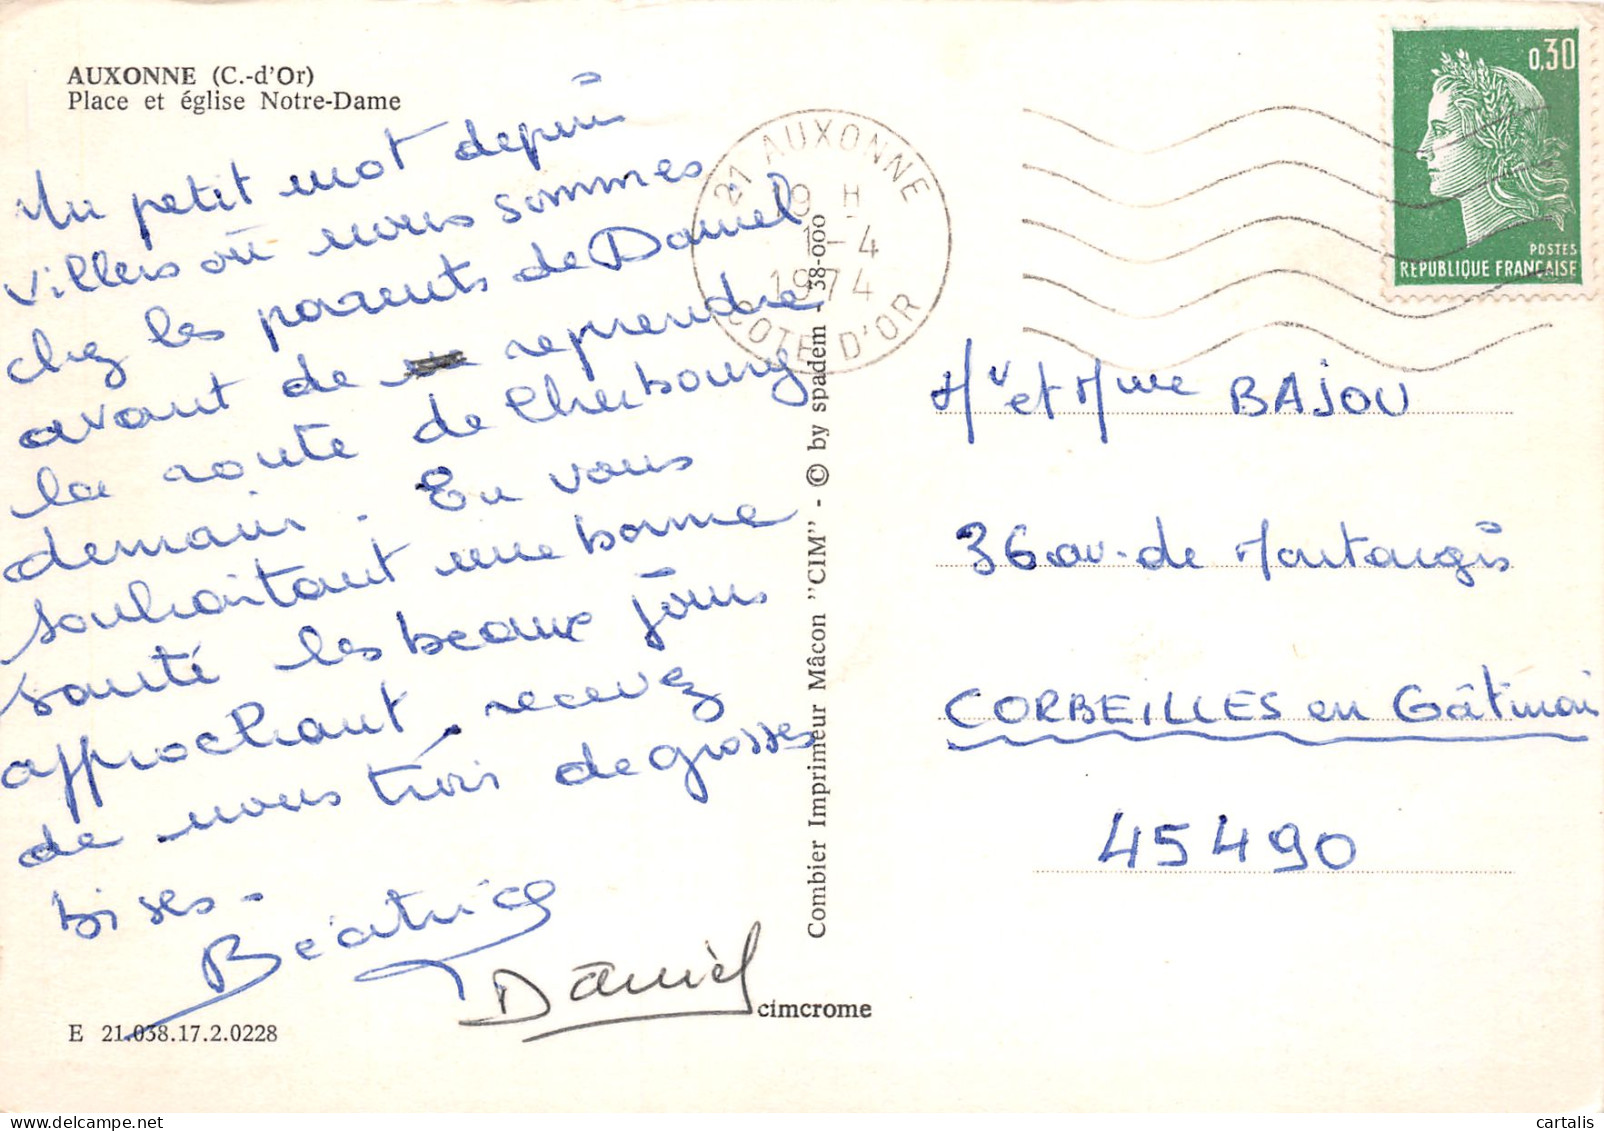 AUXONNE (C.-d'Or)
Place et église Notre-Dame
Un petit mot depuis
Villers où nous sommes
chez les parents de Daniel
avant de reprendre
la route de Cherbourg
demain. En vous
souhaitant une bonne
santé les beaux jours
approchant, recevez
de nous trois de grosses
bises.
Béatrice
Daniel
E 21.038.17.2.0228
cimcrome
Combier Imprimeur Mâcon "CIM" - © by spadem - 38-000
21 AUXONNE
19 H
1-4
1974
COTE D'OR
0,30
POSTES
REPUBLIQUE FRANCAISE
Mr et Mme BAJOU
36 av. de Montargis
CORBEILLES en Gâtinais
45490
cartalis